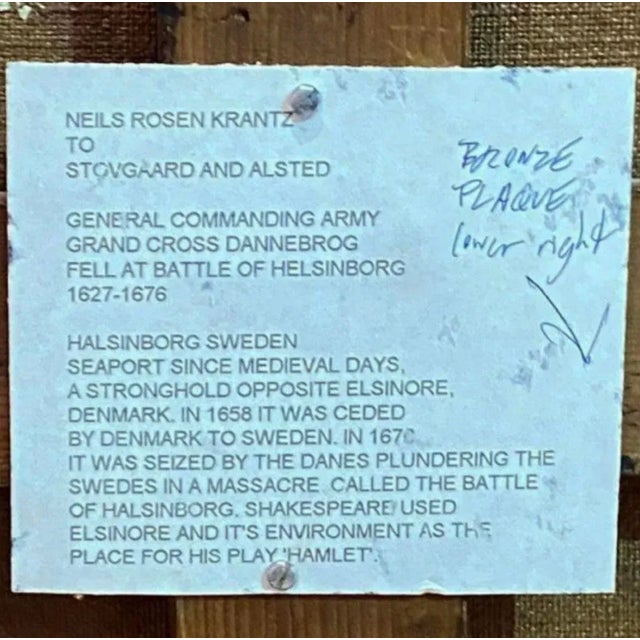 NEILS ROSEN KRANTZ
TO
STOVGAARD AND ALSTED
GENERAL COMMANDING ARMY
GRAND CROSS DANNEBROG
FELL AT BATTLE OF HELSINBORG
1627-1676
HALSINBORG SWEDEN
SEAPORT SINCE MEDIEVAL DAYS,
A STRONGHOLD OPPOSITE ELSINORE,
DENMARK. IN 1658 IT WAS CEDED
BY DENMARK TO SWEDEN. IN
IT WAS SEIZED BY THE DANES PLUNDERING THE
SWEDES IN A MASSACRE CALLED THE BATTLE
OF HALSINBORG. SHAKESPEARE USED
ELSINORE AND IT'S ENVIRONMENT AS THE
PLACE FOR HIS PLAY 'HAMLET'.
BRONZE
PLAQUE
lower right